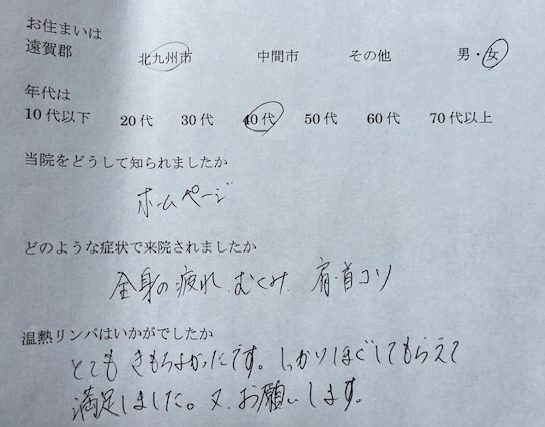 お住まいは
遠賀郡 北九州市 中間市 その他 男・女
年代は
10代以下 20代 30代 40代 50代 60代 70代以上
当院をどうして知られましたか
ホームページ
どのような症状で来院されましたか
全身の疲れ.むくみ 肩・首コリ
温熱リンパはいかがでしたか
とても きもちよかったです。しっかりほぐしてもらえて
満足しました。又、お願いします。